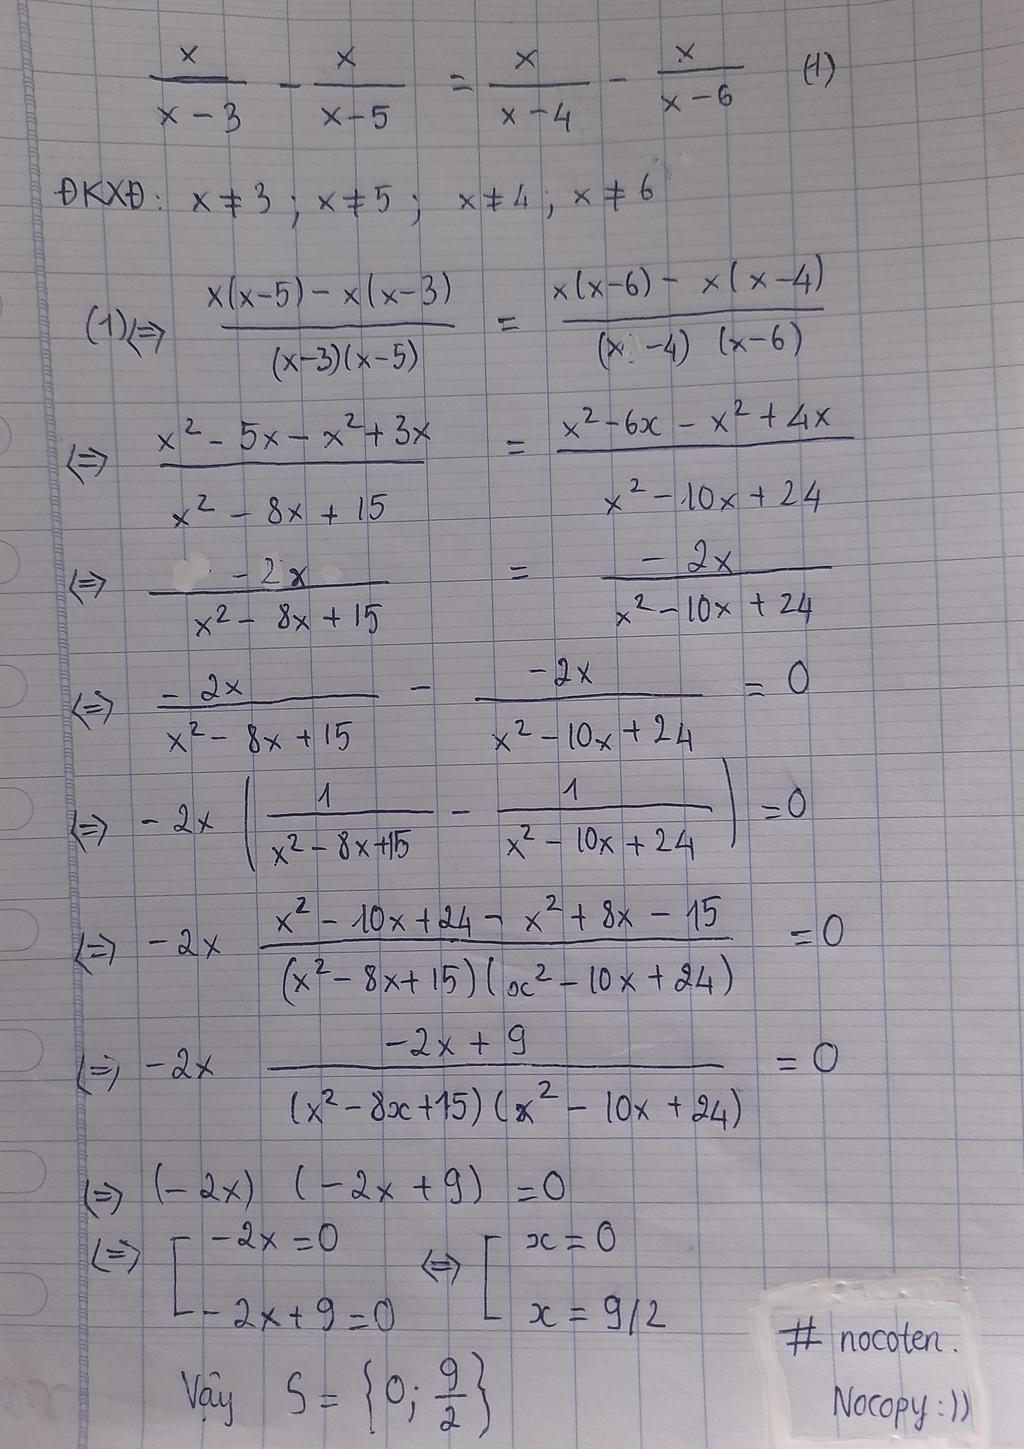 x/(x-3) - x/(x-5) = x/(x-4) - x/(x-6) (1)
ĐKXĐ: x≠3 ; x≠5 ; x≠4 ; x≠6
(1)⇔ (x(x-5) - x(x-3))/((x-3)(x-5)) = (x(x-6) - x(x-4))/((x-4)(x-6))
⇔ (x² - 5x - x² + 3x)/(x² - 8x + 15) = (x² - 6x - x² + 4x)/(x² - 10x + 24)
⇔ (-2x)/(x² - 8x + 15) = (-2x)/(x² - 10x + 24)
⇔ (-2x)/(x² - 8x + 15) - (-2x)/(x² - 10x + 24) = 0
⇔ -2x (1/(x² - 8x + 15) - 1/(x² - 10x + 24)) = 0
⇔ -2x (x² - 10x + 24 - x² + 8x - 15)/((x² - 8x + 15)(x² - 10x + 24)) = 0
⇔ -2x (-2x + 9)/((x² - 8x + 15)(x² - 10x + 24)) = 0
⇔ (-2x) (-2x + 9) = 0
⇔ [ -2x = 0 ⇔ [ x = 0
-2x + 9 = 0 x = 9/2
Vậy S = {0; 9/2}
# nocoten.
Nocopy :))